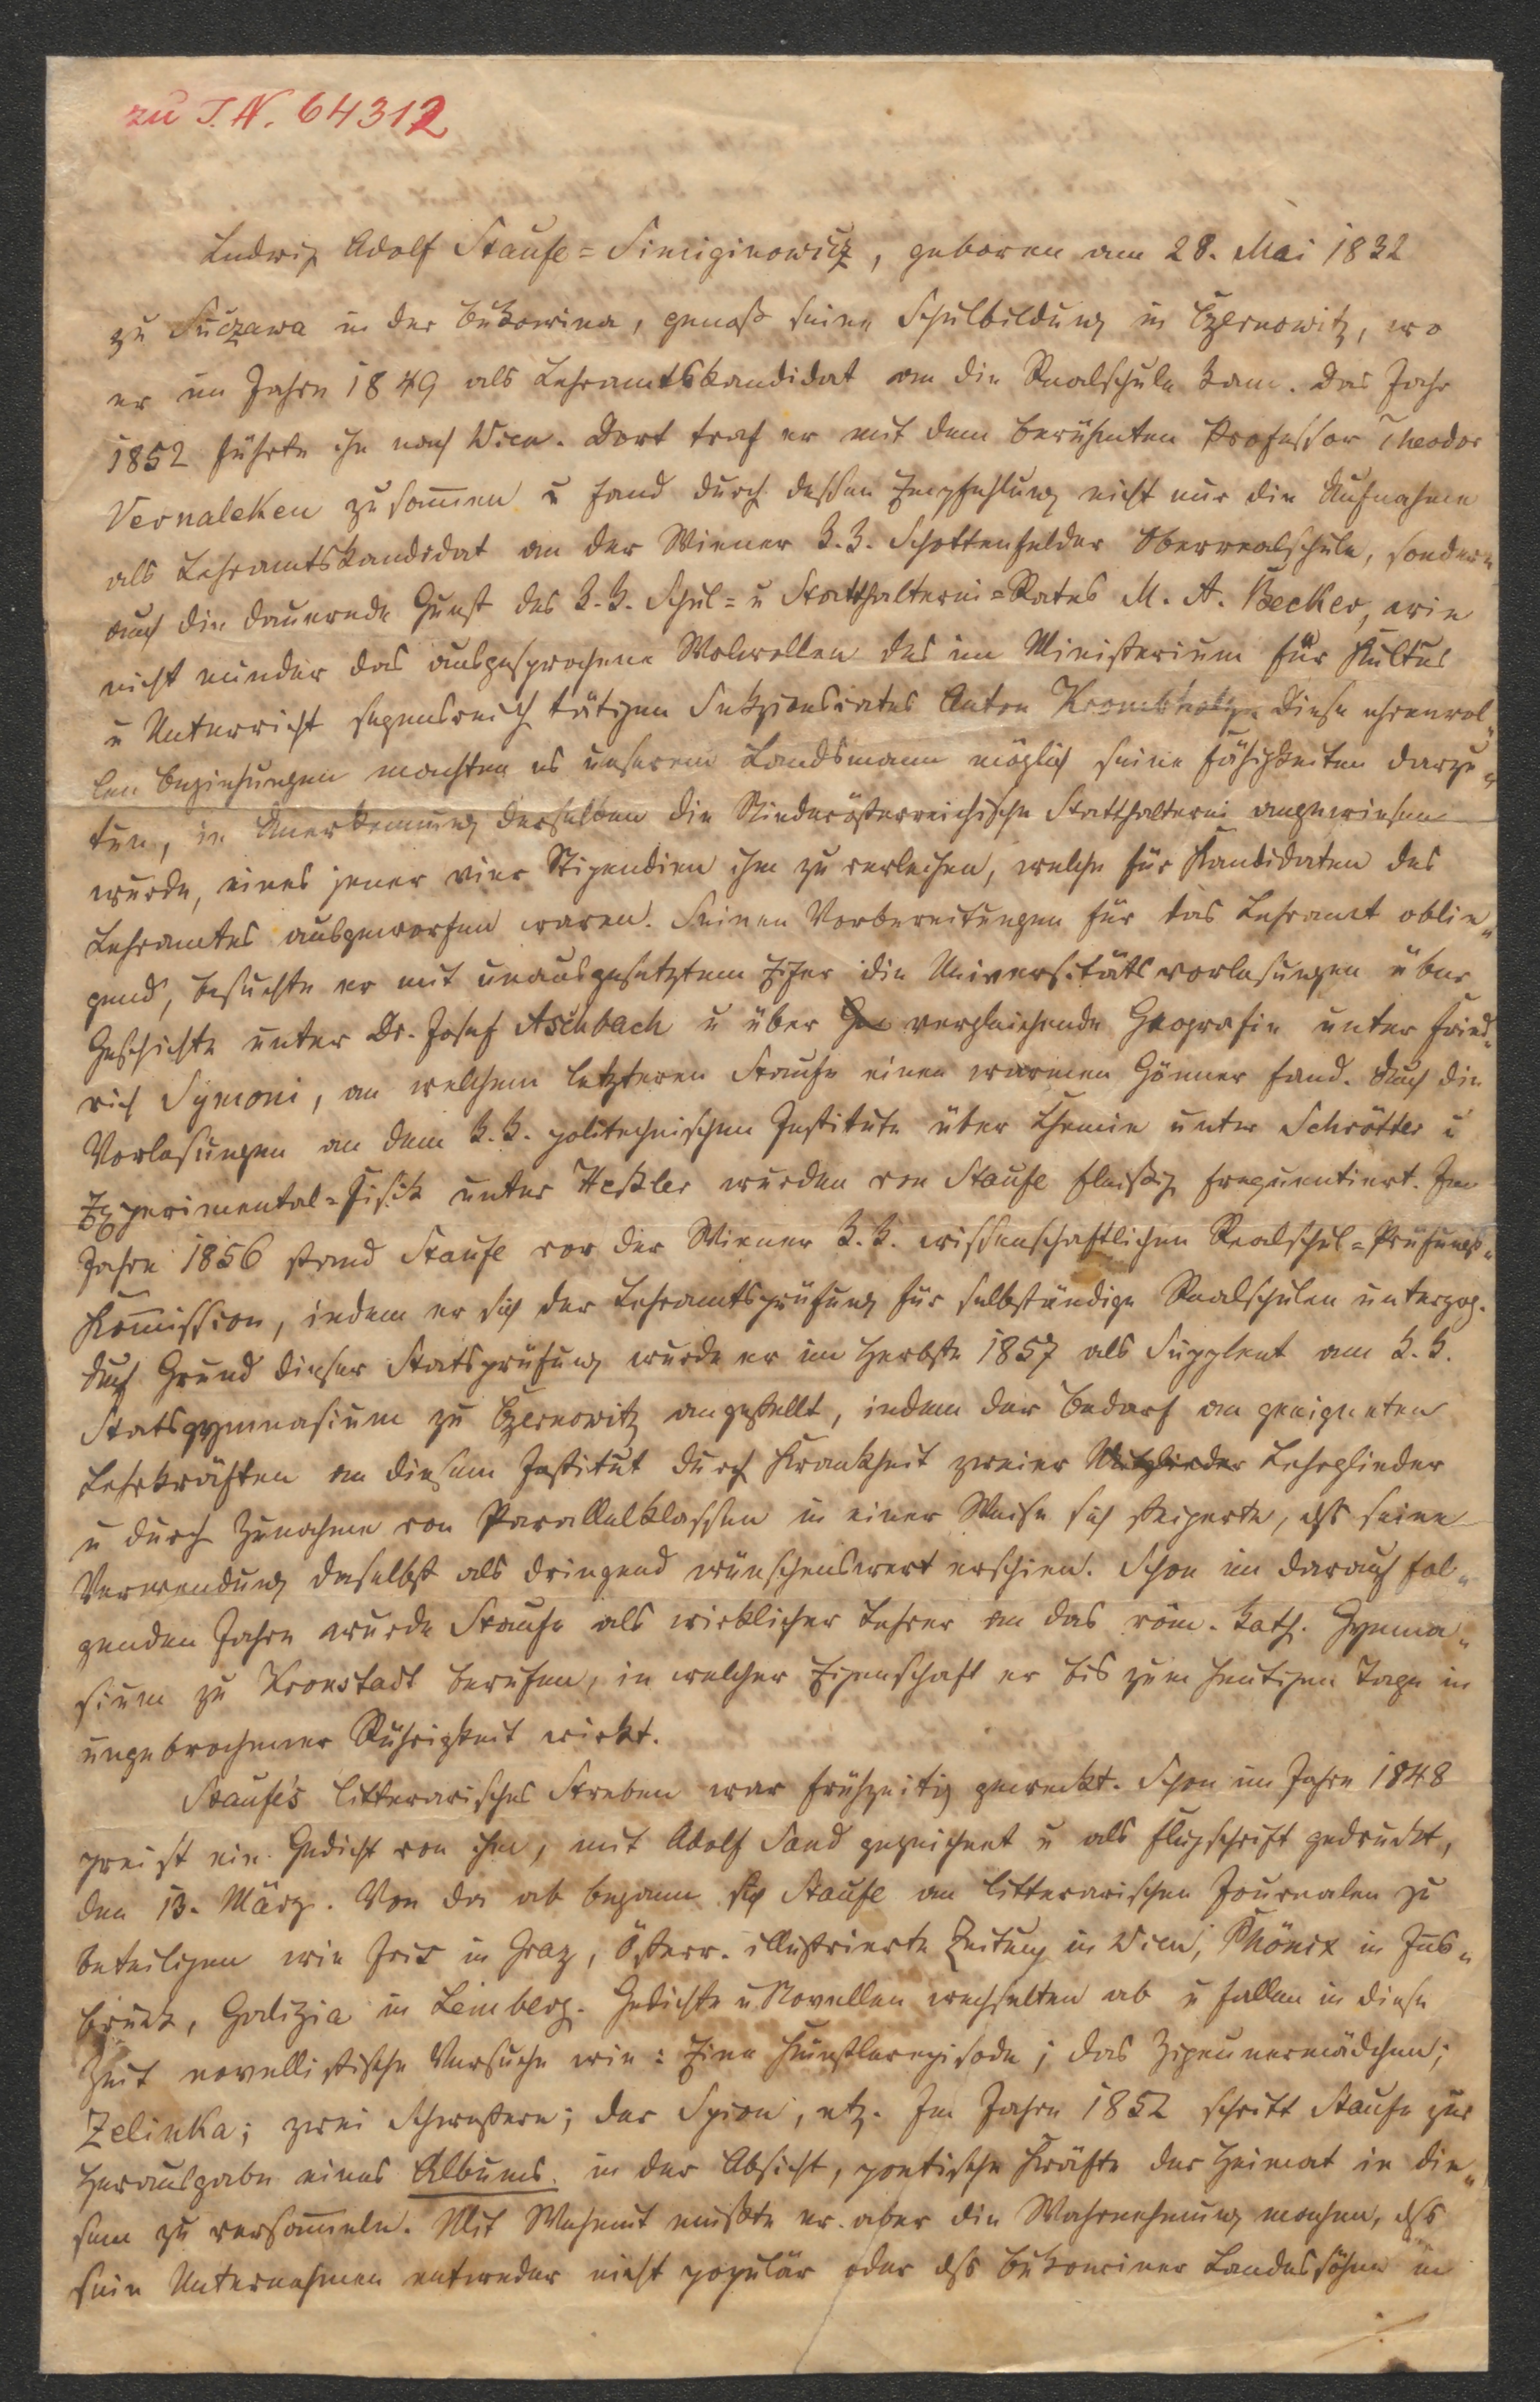 zu I.N. 64312
Ludwig Adolf Staufe=Simiginowicz, geboren am 28. Mai 1832
zu Suczawa in der Bukowina, genoß seine Schulbildung in Czernowitz, wo
er im Jahre 1849 als Lehramtskandidat an die Realschule kam. Das Jahr
1852 führte ihn nach Wien. Dort traf er mit dem berühmten Professor Theodor
Vernaleken zusam̄en u fand durch dessen Empfehlung nicht nur die Aufnahme
als Lehramtskandidat an der Wiener k.k. Schottenfelder Oberrealschule, sondern
auch die dauernde Gunst des k.k. Schul= u Statthalterei=Rates M. A. Becker, wie
nicht minder das ausgesprochene Wolwollen des im Ministerium für Kultus
u Unterricht segensreich tätigen Sekzionsrates Anton Krombholz. Diese ehrenvol„
len Beziehungen machten es unserem Landsmann möglich seine Fähigkeiten darzu„
tun, in Anerkennung derselben die Niederösterreichische Statthalterei angewiesen
wurde, eines jener vier Stipendien ihm zu verleihen, welche für Kandidaten des
Lehramtes ausgeworfen waren. Seinen Vorbereitungen für das Lehramt oblie„
gend, besuchte er mit unausgesetztem Eifer die Universitätsvorlesungen über
Geschichte unter Dr. Josef Aschbach u über Ge vergleichende Geografie unter Fried„
rich Symoni, an welchem letzteren Staufe einen warmen Gönner fand. Auch die
Vorlesungen an dem k.k. politechnischen Institute über Chemie unter Schrötter u
Experimental=Fisik unter Heßler wurden von Staufe fleißig frequentiert. Im
Jahre 1856 stand Staufe vor der Wiener k.k. wissenschaftlichen Realschul=Prüfungs„
Kom̄ission, indem er sich der Lehramtsprüfung für selbständige Realschulen unterzog.
Auf Grund dieser Statsprüfung wurde er im Herbste 1857 als Supplent am k.k.
Statsgymnasium zu Czernowitz angestellt, indem der Bedarf an geeigneten
Lehrkräften an diesem Institut durch Krankheit zweier Mitglieder Lehrglieder
u durch Zunahme von Parallelklassen in einer Weise sich steigerte, dß seine
Verwendung daselbst als dringend wünschenswert erschien. Schon im darauf fol„
genden Jahre wurde Staufe als wirklicher Lehrer an das röm. kath. Gymna„
sium zu Kronstadt berufen, in welcher Eigenschaft er bis zum heutigen Tage in
ungebrochener Rührigkeit wirkt.
Staufe's litterarisches Streben war frühzeitig geweckt. Schon im Jahre 1848
preist ein Gedicht von ihm, mit Adolf Sand gezeichnet u als Flugschrift gedruckt,
den 13. März. Von da ab begann sich Staufe an litterarischen Journalen zu
beteiligen wie Iris in Graz, Österr. illustrierte Zeitung in Wien, Phönix in Ins„
bruck, Galizia in Lemberg. Gedichte u Novellen wechselten ab u fallen in diese
Zeit novellistische Versuche wie: Eine Künstlerepisode; das Zigeunermädchen;
Zelinka; zwei Schwestern; der Spion, etz. Im Jahre 1852 schritt Staufe zur
Herausgabe eines Albums in der Absicht, poetische Kräfte der Heimat in die„
sem zu versam̄eln. Mit Wehmut mußte er aber die Wahrnehmung machen, dß
sein Unternehmen entweder nicht populär oder dß Bukowiner Landessöhne in
./.